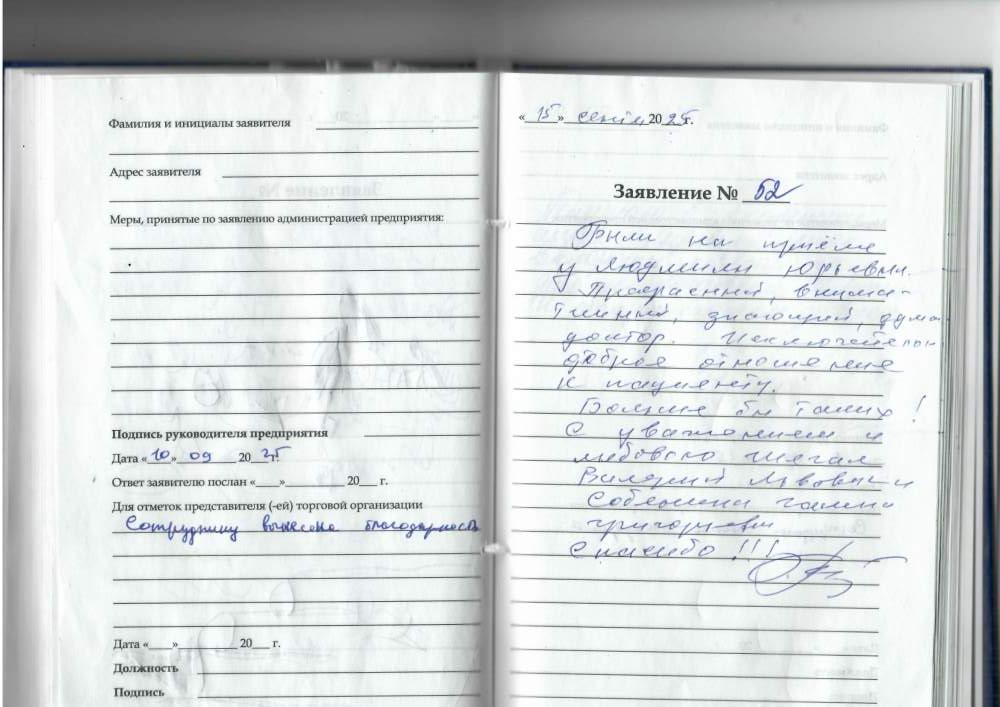 Фамилия и инициалы заявителя
Адрес заявителя
Меры, принятые по заявлению администрацией предприятия:
Подпись руководителя предприятия
Дата «10» 09 2025г.
Ответ заявителю послан «___»________ 20___ г.
Для отметок представителя (-ей) торговой организации
Сотруднику вынесена благодарность
Дата «___»________ 20___ г.
Должность
Подпись
«15» сентя 2025г.
Заявление № 52
Были на приёме
у Людмилы Юрьевны.
Прекрасный, внима-
тельный, знающий,
доктор. Исключительн
доброе отношение
к пациенту.
Больше бы таких!
С уважением и
любовью
Валерий Львович и
Галина
Григорьевна
Спасибо!!!